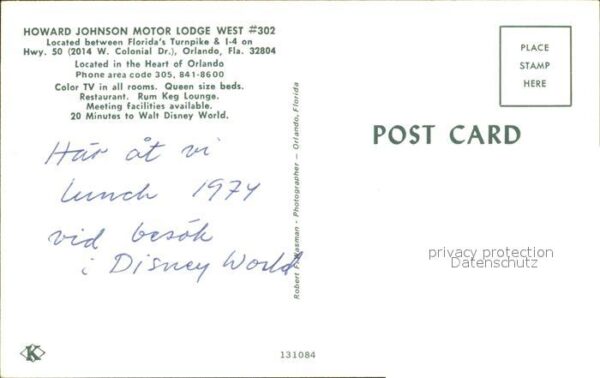 HOWARD JOHNSON MOTOR LODGE WEST #302
Located between Florida's Turnpike & I-4 on
Hwy. 50 (2014 W. Colonial Dr.), Orlando, Fla. 32804
Located in the Heart of Orlando
Phone area code 305, 841-8600
Color TV in all rooms. Queen size beds.
Restaurant. Rum Keg Lounge.
Meeting facilities available.
20 Minutes to Walt Disney World.
Här åt vi
lunch 1974
vid besök
i Disney World
Robert F. - Photographer - Orlando, Florida
PLACE
STAMP
HERE
POST CARD
privacy protection
Datenschutz
K
131084